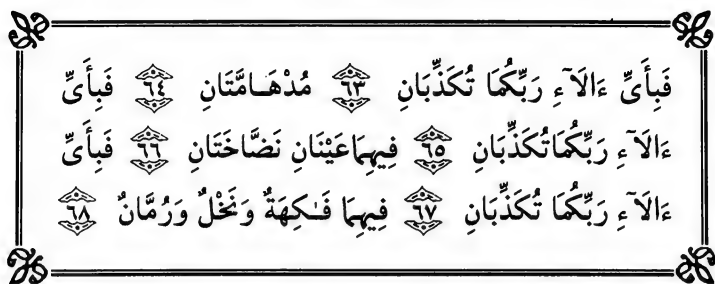 فَبِأَىِّ ءَالَآءِ رَبِّكُمَا تُكَذِّبَانِ ٦٣ مُدْهَـامَّتَانِ ٦٤ فَبِأَىِّ
ءَالَآءِ رَبِّكُمَا تُكَذِّبَانِ ٦٥ فِيهِمَا عَيْنَانِ نَضَّاخَتَانِ ٦٦ فَبِأَىِّ
ءَالَآءِ رَبِّكُمَا تُكَذِّبَانِ ٦٧ فِيهِمَا فَـٰكِهَةٌ وَنَخْلٌ وَرُمَّانٌ ٦٨